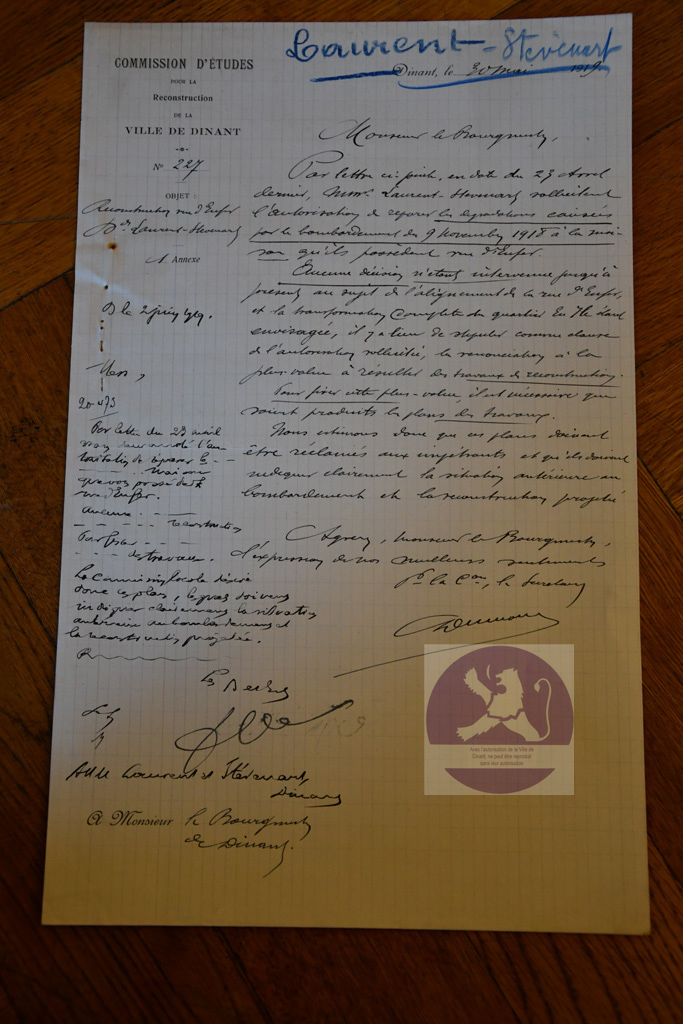 Laurent-Stévenart
COMMISSION D'ÉTUDES
POUR LA
Reconstruction
DE LA
VILLE DE DINANT
N° 227
OBJET :
Reconstruction rue d'Enfer
Laurent-Stevenart
1 Annexe
Dinant, le 30 mai 1919
Monsieur le Bourgmestre,
Par lettre ci-jointe, en date du 23 Avril
dernier, Mme Laurent-Stevenart sollicitent
l'autorisation de réparer les dégradations causées
par le bombardement du 9 novembre 1918 à la mai-
son qu'ils possèdent rue d'Enfer.
Aucune décision n'étant intervenue jusqu'à
présent au sujet de l'alignement de la rue d'Enfer,
et la transformation complète du quartier
envisagée, il y a lieu de stipuler comme clause
de l'autorisation sollicitée, la renonciation à la
plus-value à résulter des travaux de reconstruction.
Pour fixer cette plus-value, il est nécessaire que
soient produits les plans des travaux.
Nous estimons donc que ces plans doivent
être réclamés aux impétrants et qu'ils doivent
indiquer clairement la situation antérieure au
bombardement et la reconstruction projetée
Agréez, Monsieur le Bourgmestre,
l'expression de nos meilleurs sentiments
Pr la Con, le Secrétaire
D le 2 juin 1919.
20-473
Par lettre du 23 avril
maison
que vous possédez
rue d'Enfer.
Aucune - - - -
- - - - reconstruction
Par fixer - - -
- - - des travaux.
La Commission locale désire
donc ces plans, lesquels doivent
indiquer clairement la situation
antérieure au bombardement et
la reconstruction projetée.
Le Bourg
A M M Laurent et Stévenart,
Dinant
A Monsieur le Bourgmestre
de Dinant.
Avec l'autorisation de la Ville de
Dinant, ne peut être reproduit
sans leur autorisation